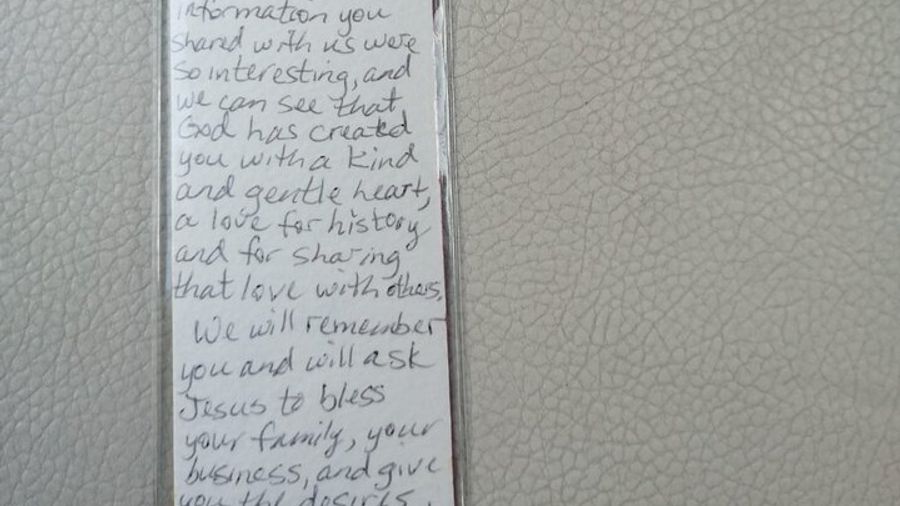 information you
shared with us were
so interesting, and
we can see that
God has created
you with a kind
and gentle heart,
a love for history
and for sharing
that love with others.
We will remember
you and will ask
Jesus to bless
your family, your
business, and give
you the desires